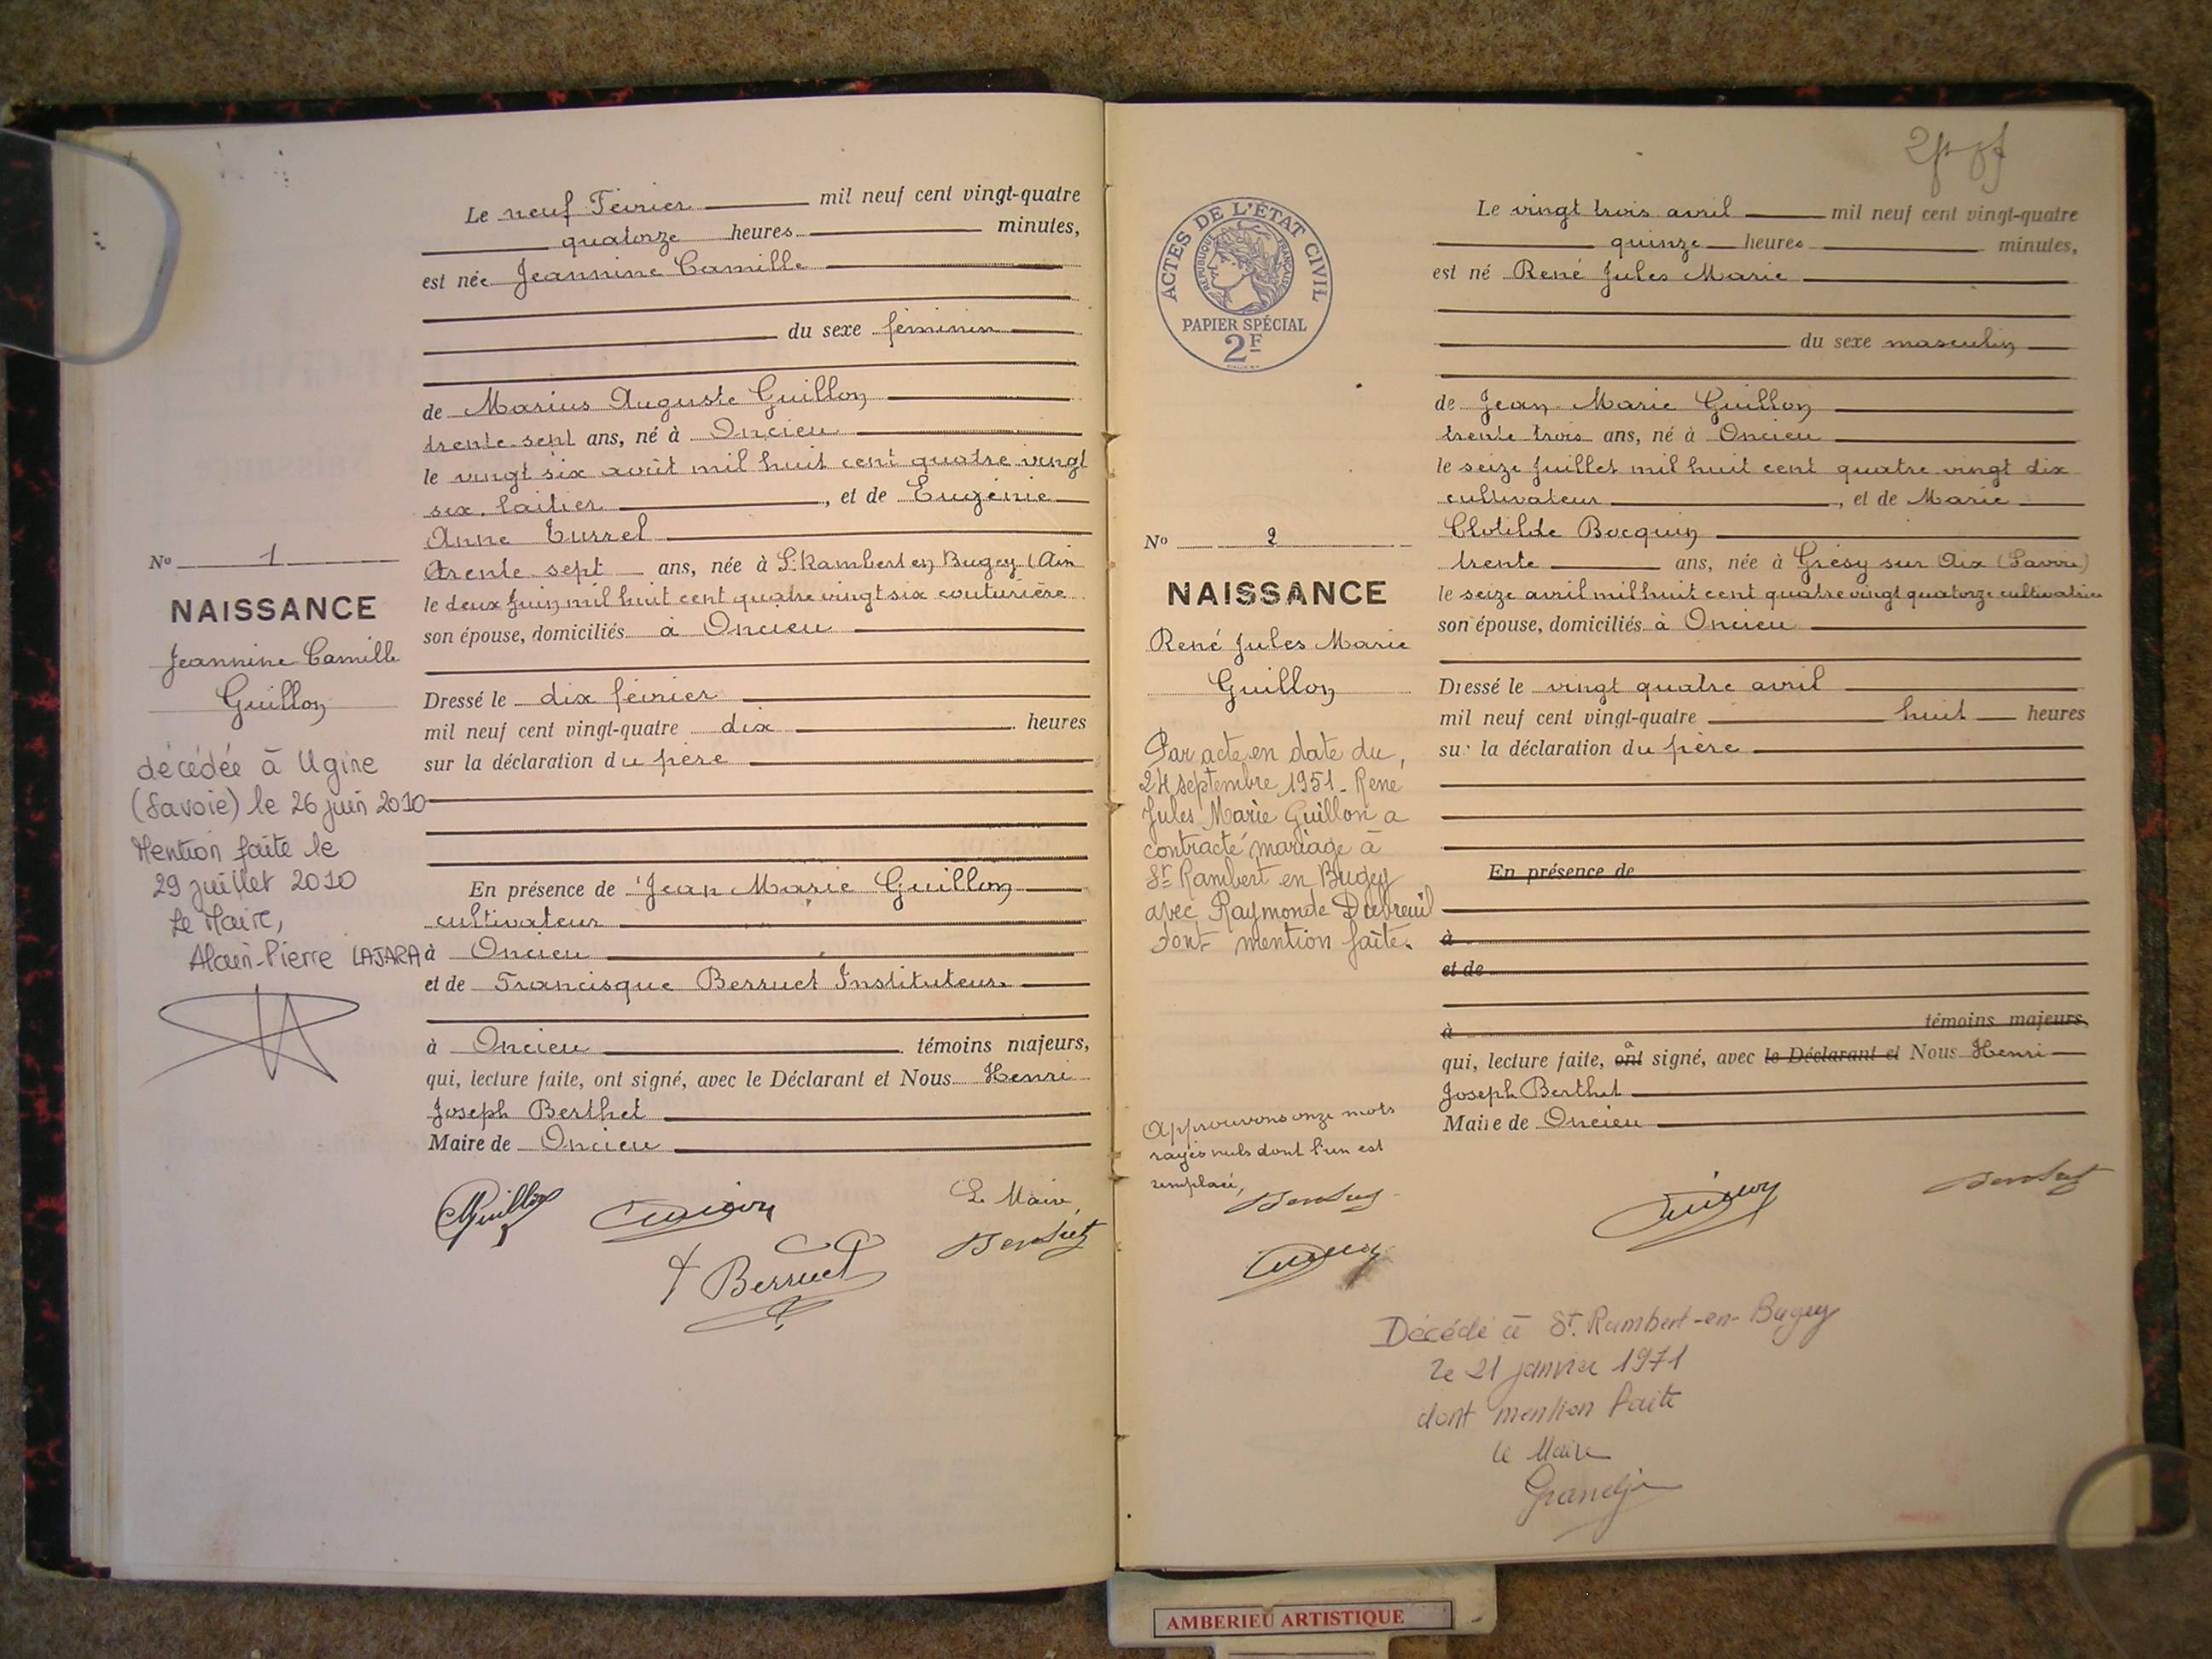 Le neuf Février mil neuf cent vingt-quatre
quatorze heures minutes,
est née Jeannine Camille
du sexe féminin
de Marius Auguste Guillon
trente sept ans, né à Oncieu
le vingt six août mil huit cent quatre vingt
six, laitier, et de Eugénie
Anne Turrel
trente sept ans, née à St Rambert en Bugey (Ain
le deux Juin mil huit cent quatre vingt six couturière
son épouse, domiciliés à Oncieu
Dressé le dix février
mil neuf cent vingt-quatre dix heures
sur la déclaration du père
En présence de Jean Marie Guillon
cultivateur
à Oncieu
et de Francisque Berruet Instituteur
à Oncieu témoins majeurs,
qui, lecture faite, ont signé, avec le Déclarant et Nous Henri
Joseph Berthet
Maire de Oncieu
Guillon
Le Maire,
Berruet
Berthet
No 1
NAISSANCE
Jeannine Camille
Guillon
décédée à Ugine
(Savoie) le 26 juin 2010
Mention faite le
29 juillet 2010
Le Maire,
Alain-Pierre LAJARA
ACTES DE L'ÉTAT CIVIL
RÉPUBLIQUE FRANÇAISE
PAPIER SPÉCIAL
2F
Le vingt trois avril mil neuf cent vingt-quatre
quinze heures minutes,
est né René Jules Marie
du sexe masculin
de Jean Marie Guillon
trente trois ans, né à Oncieu
le seize Juillet mil huit cent quatre vingt dix
cultivateur, et de Marie
Clotilde Bocquin
trente ans, née à Grésy sur Aix (Savoie)
le seize avril mil huit cent quatre vingt quatorze cultivatrice
son épouse, domiciliés à Oncieu
Dressé le vingt quatre avril
mil neuf cent vingt-quatre huit heures
sur la déclaration du père
En présence de
à
et de
à témoins majeurs,
qui, lecture faite, ont a signé, avec le Déclarant et Nous Henri
Joseph Berthet
Maire de Oncieu
No 2
NAISSANCE
René Jules Marie
Guillon
Par acte en date du,
24 septembre 1951. René
Jules Marie Guillon a
contracté mariage à
St Rambert en Bugey
avec Raymonde Dubreuil
dont mention faite.
Approuvons onze mots
rayés nuls dont l'un est
remplacé,
Berthet
Guillon
Guillon
Berthet
Décédé à St. Rambert-en-Bugey
le 21 janvier 1971
dont mention faite
le Maire
AMBERIEU ARTISTIQUE